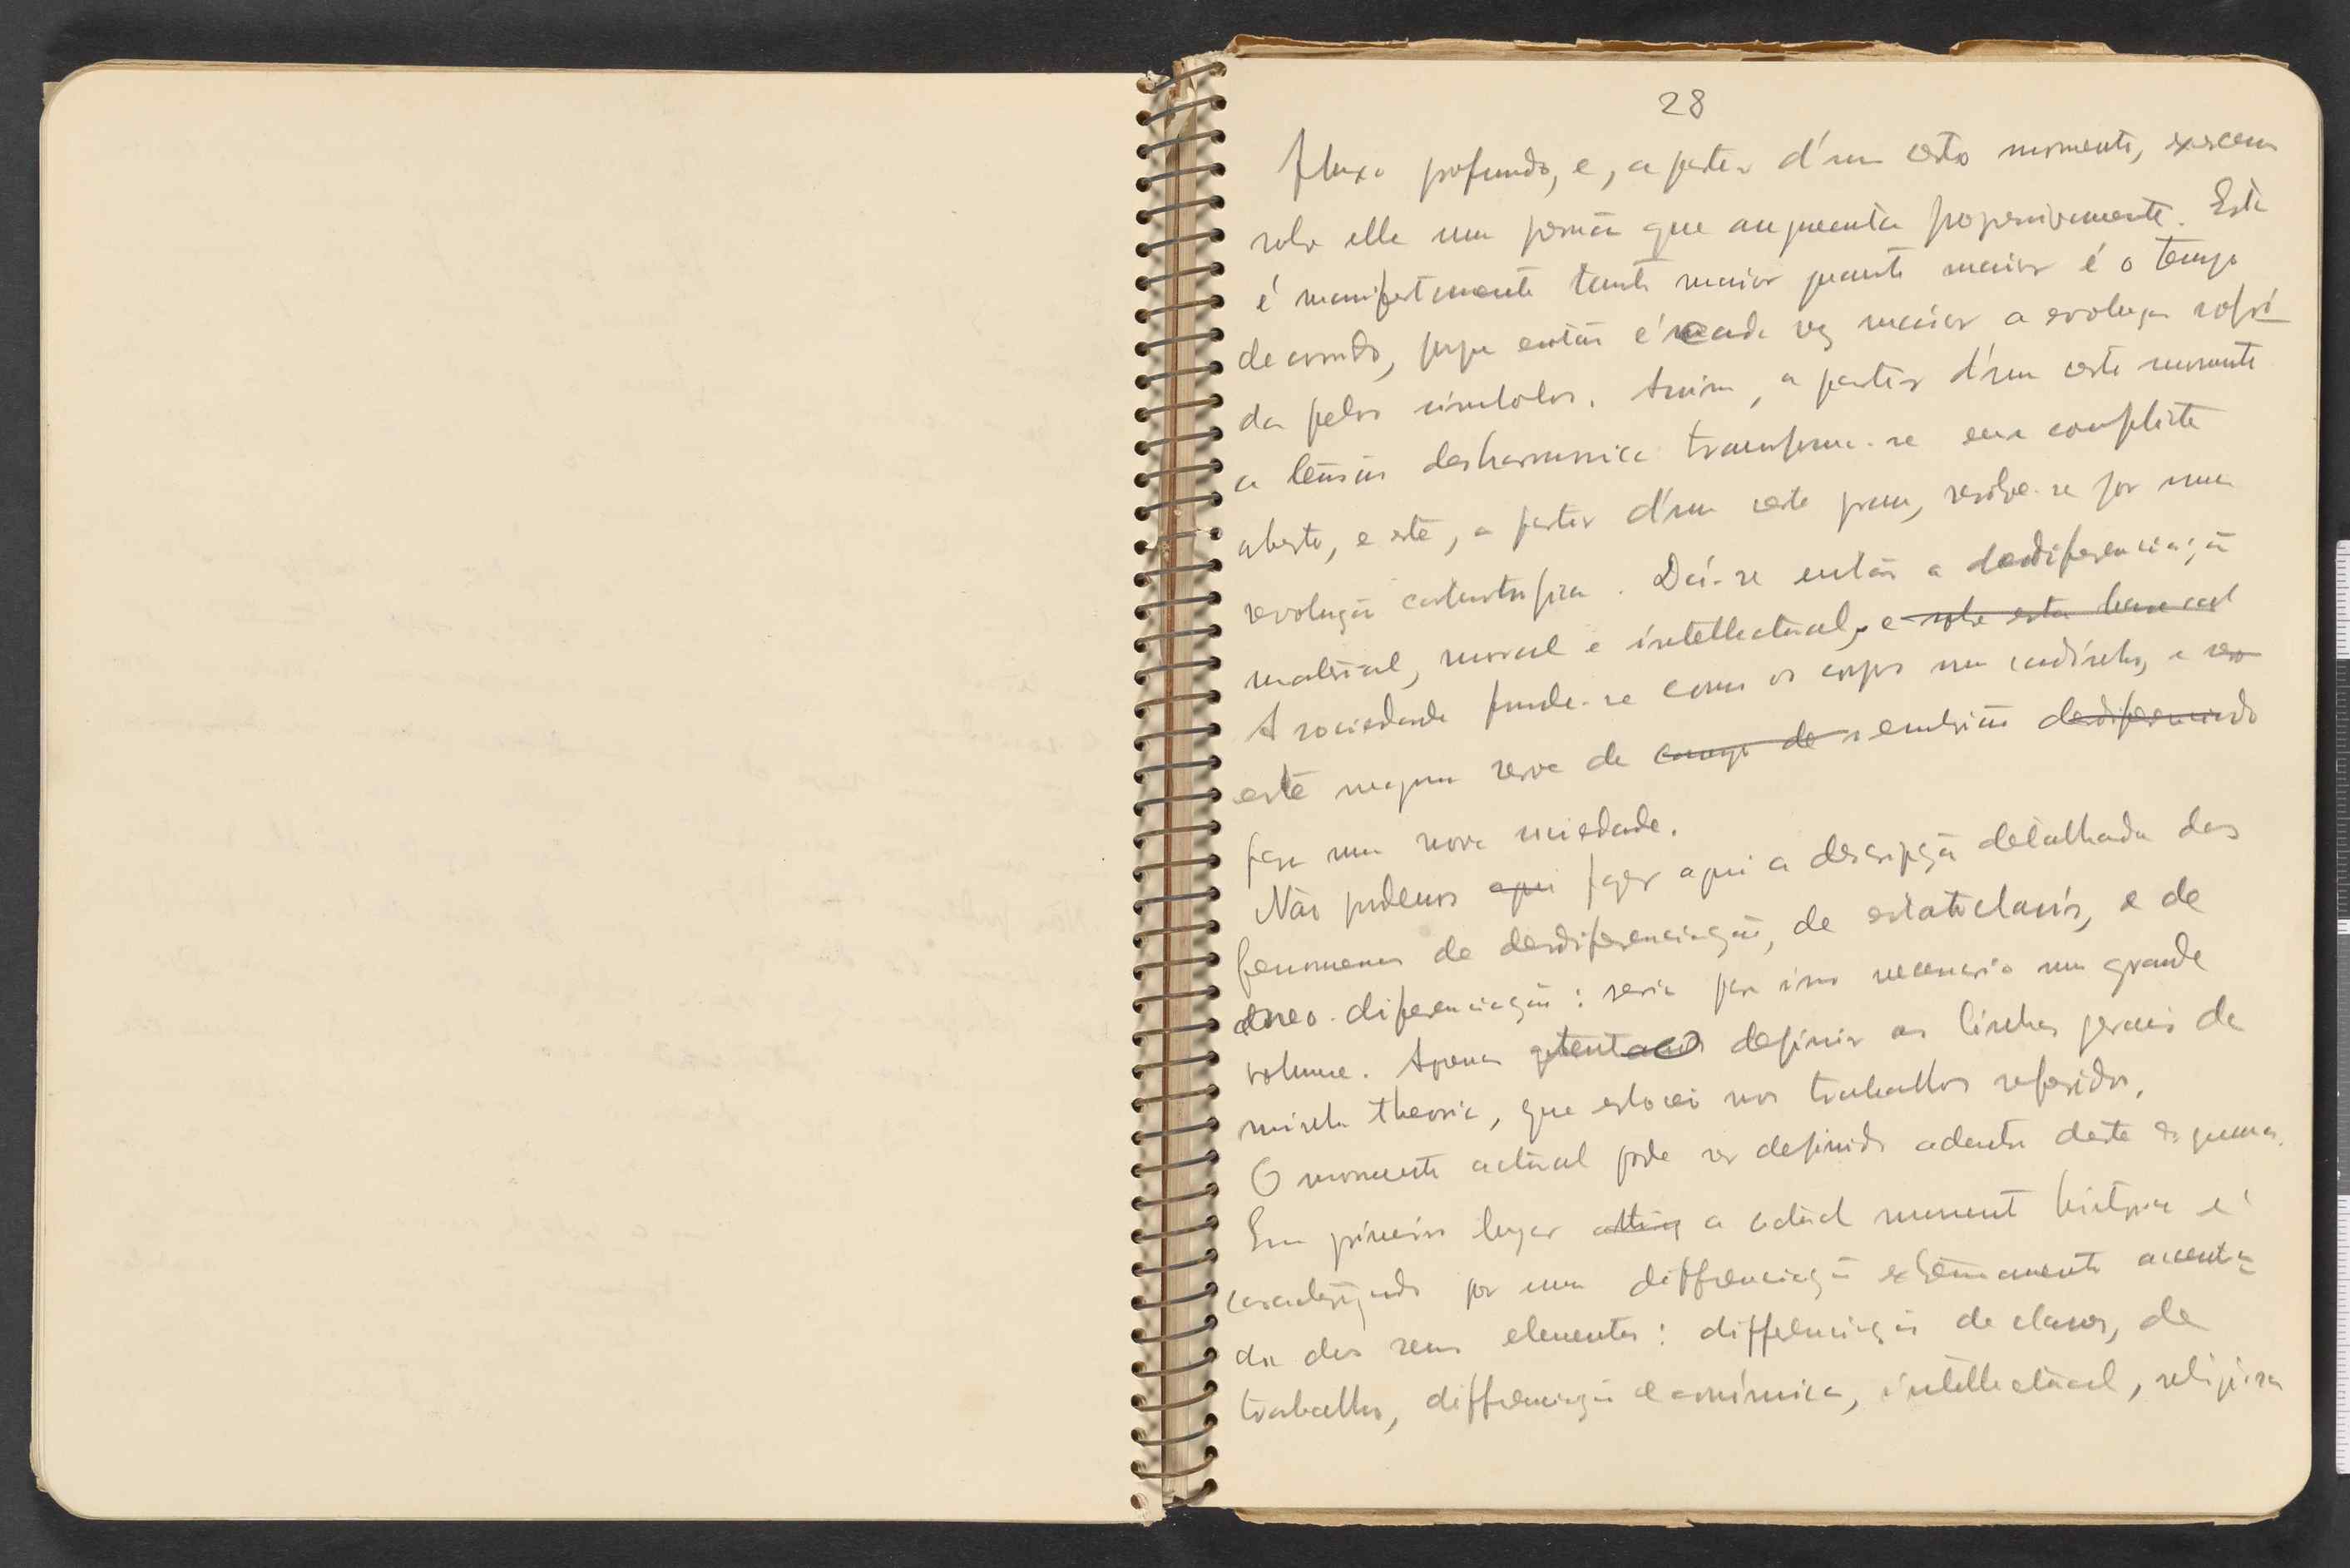 28
fluxo profundo, e, a partir d'um certo momento, exercem
sobre elle uma pressão que augmenta progressivamente. Esta
é manifestamente tanto maior quanto maior é o tempo
decorrido, porque então é cada vez maior a evolução sofri
da pelos simbolos. Assim, a partir d'um certo momento
a tensão desharmonica transforma-se em conflicto
aberto, e este, a partir d'um certo grau, resolve-se por uma
revolução catastrofica. Dá-se então a desdiferenciação
material, moral e intellectual, e sobre esta base
A sociedade funde-se como os corpos num cadinho, e
este magma serve de começo de embrião desdiferenciado
para uma nova sociedade.
Não podemos aqui fazer aqui a descripção detalhada dos
fenomenos de desdiferenciação, de e de
neo-diferenciação: seria para isso necessario um grande
volume. Apenas definir as linhas geraes da
minha theoria, que esbocei nos trabalhos referidos.
O momento actual pode ser definido adentro deste esquema.
Em primeiro lugar o actual momento historico é
caracterizado por uma differenciação extremamente accentua
da dos seus elementos: differenciação de classes, de
trabalho, differenciação económica, intellectual, religiosa